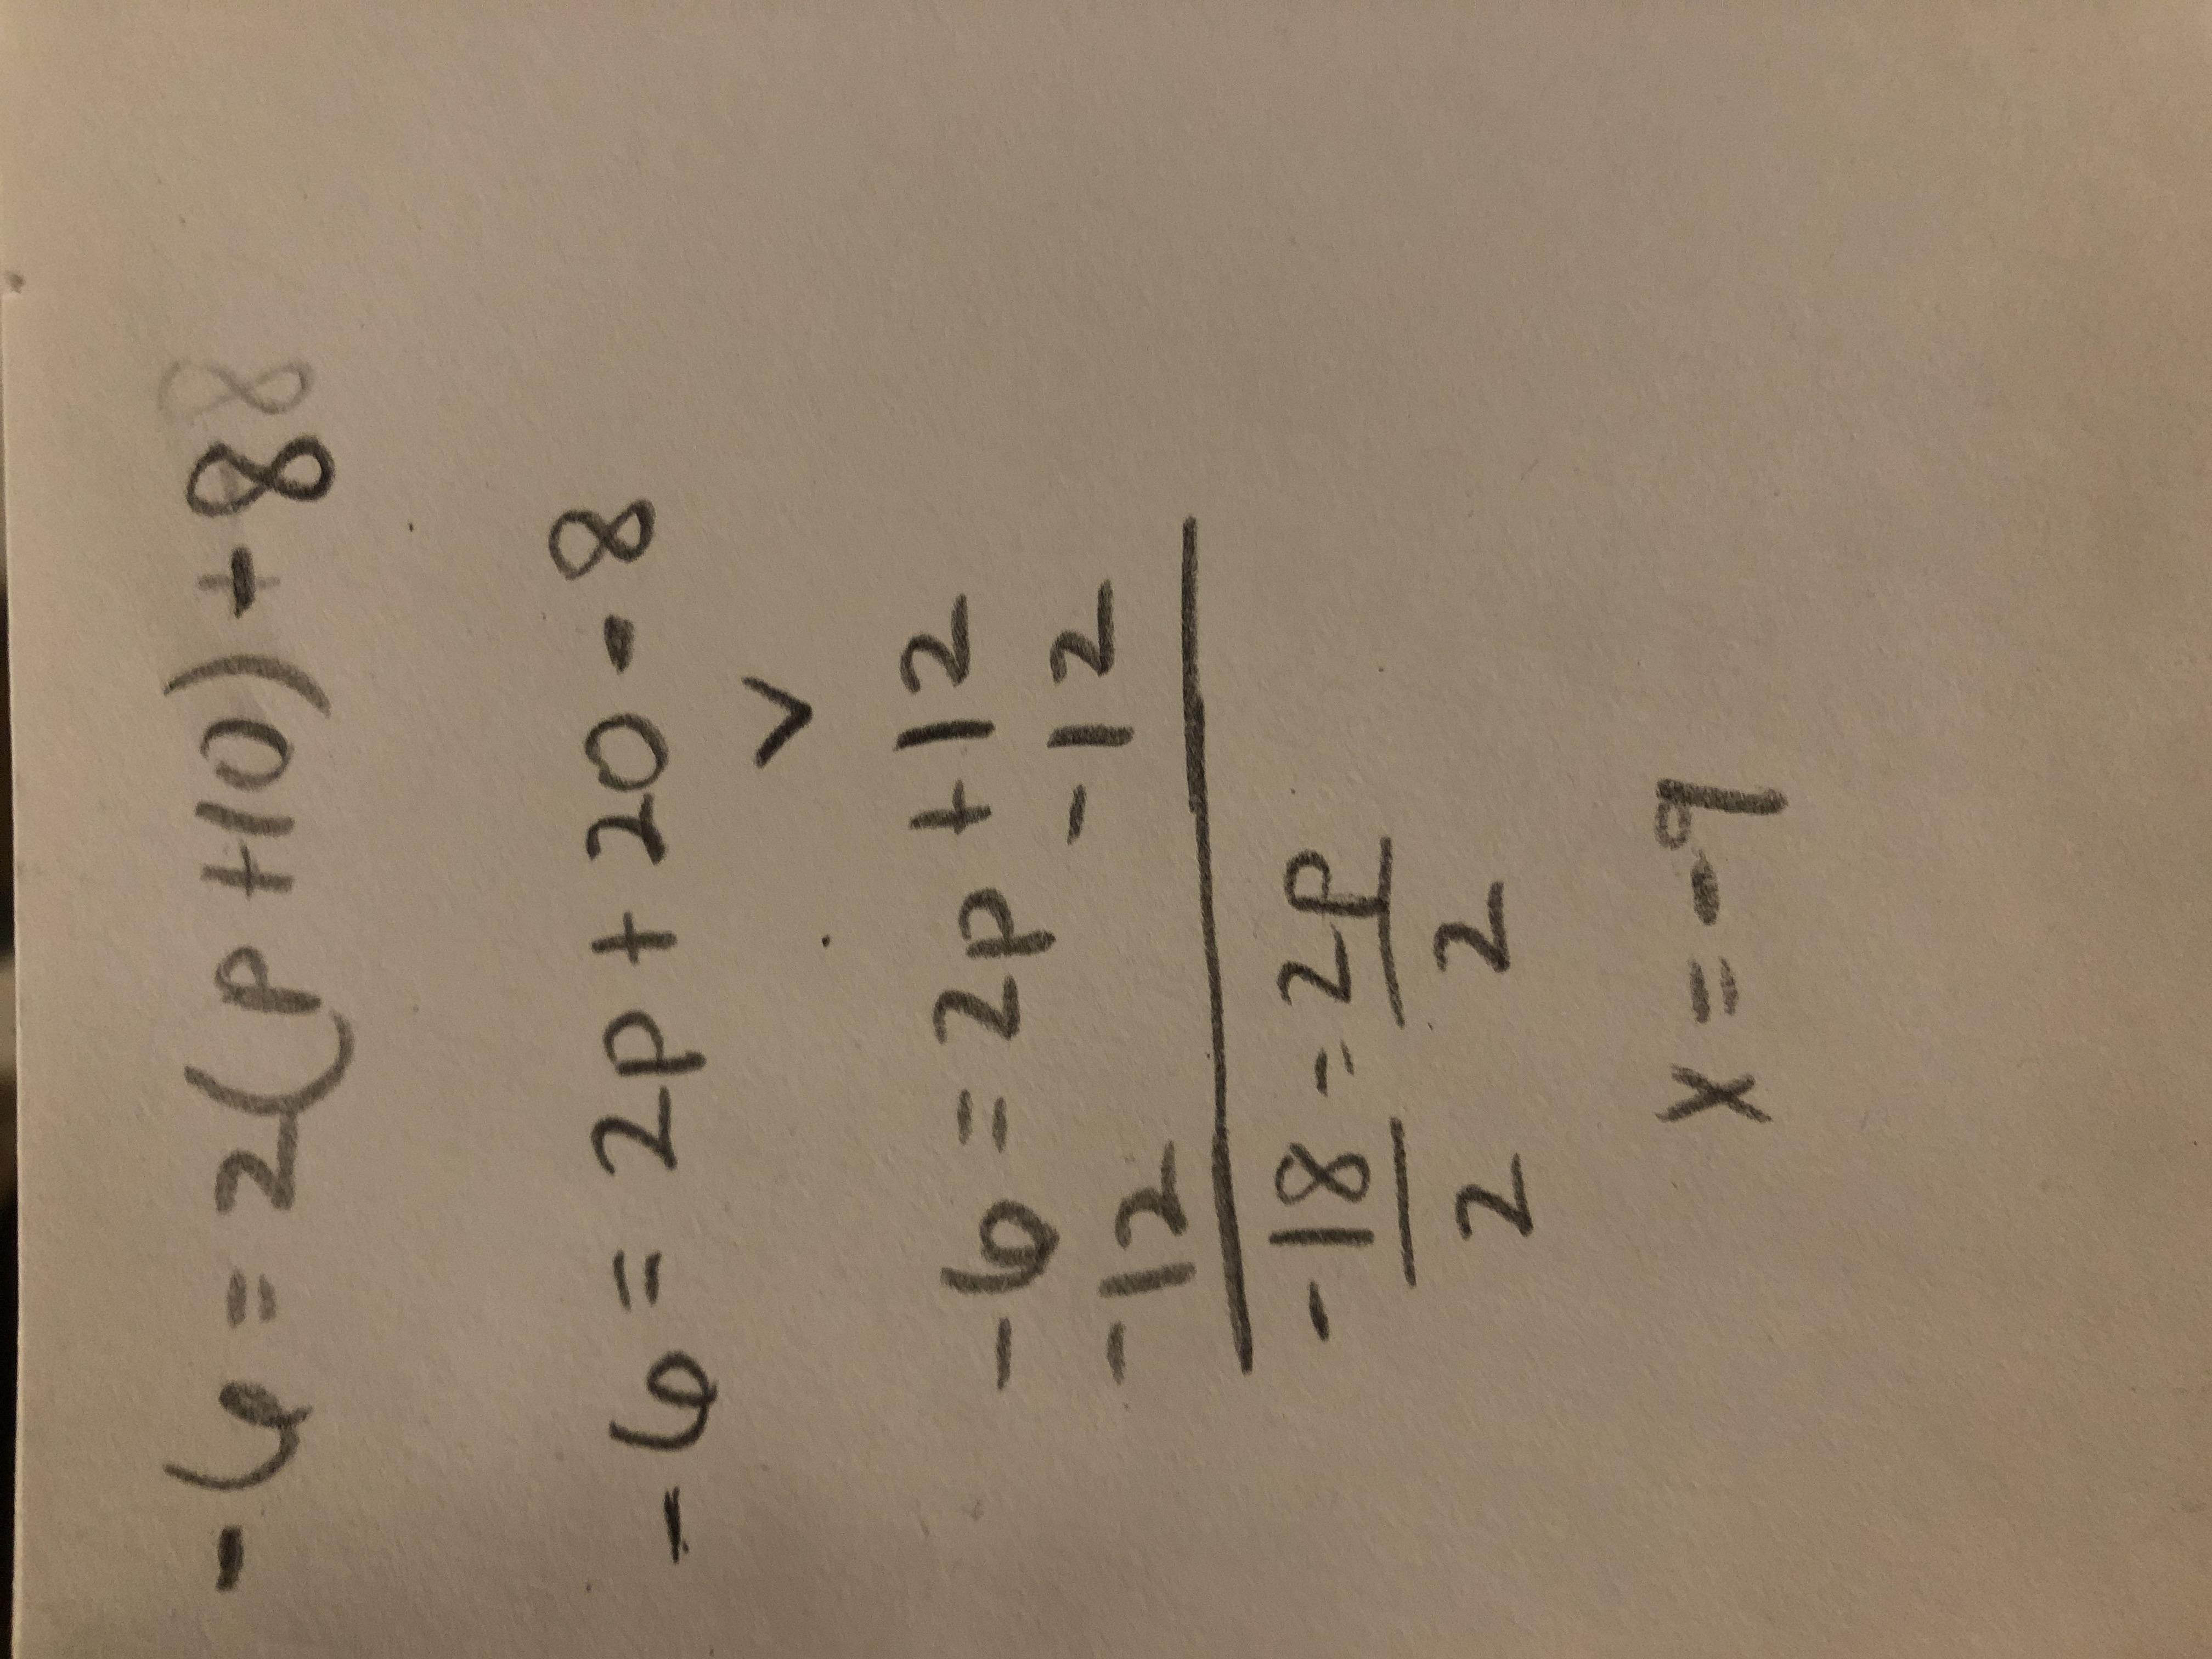 -6 = 2(p+10) - 8
-6 = 2p + 20 - 8
-6 = 2p + 12
-12 -12
-18 = 2p
2 2
x = -9